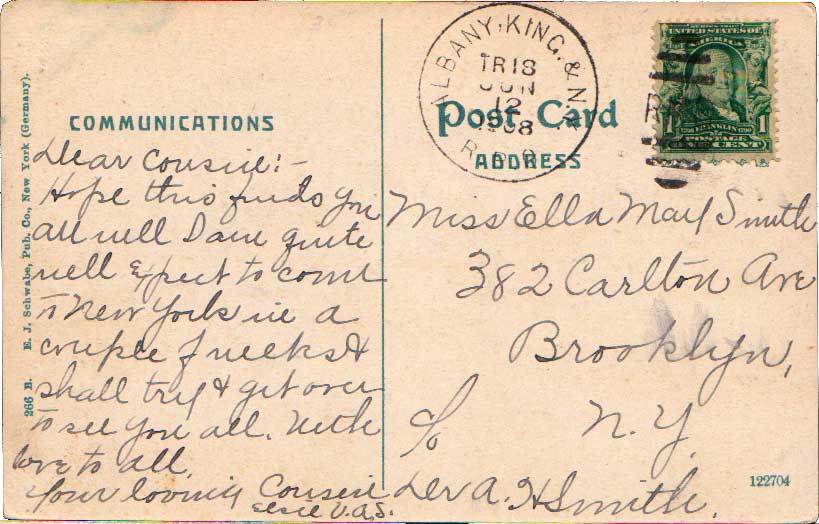 COMMUNICATIONS
Dear Cousin:-
Hope this finds you
all well I am quite
well Expect to come
to New York in a
couple of weeks &
shall try & get over
to see you all. With
love to all.
Your loving Cousin
Elsie V.A.S.
266 B. E. J. Schwabe, Pub. Co., New York (Germany).
ALBANY, KING. & N.Y.
TR 18
JUN
12
1908
R.P.O.
Post Card
ADDRESS
SERIES 1902
UNITED STATES OF
AMERICA
1706 FRANKLIN 1790
POSTAGE
1 ONE CENT 1
Miss Ella May Smith
382 Carlton Ave
Brooklyn,
N.Y.
c/o
A. H Smith.
122704